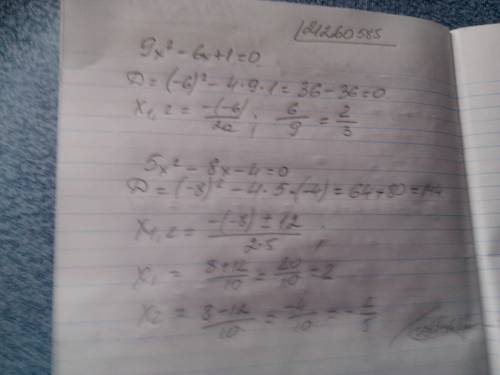 21260585
9x² - 6x + 1 = 0
D = (-6)² - 4·9·1 = 36 - 36 = 0
x₁,₂ = -(-6)/2a ; 6/9 = 2/3
5x² - 8x - 4 = 0
D = (-8)² - 4·5·(-4) = 64 + 80 = 144
x₁,₂ = -(-8) ± 12 / 2·5 ;
x₁ = 8+12/10 = 20/10 = 2
x₂ = 8-12/10 = -4/10 = -2/5